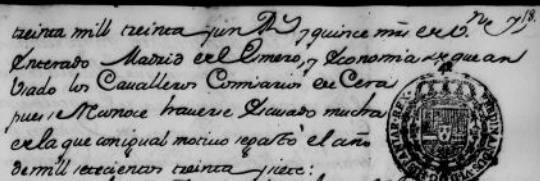 treinta mill treinta y un Rs y quince mrs de Vn y
Enterado Madrid de el Esmero, y Economia con que an
Viado los Cavalleros Comisarios de Cera
pues Reconoce haverse Escusado mucha
de la que con igual motivo se gastó el año
de mill setecientos treinta y siete: